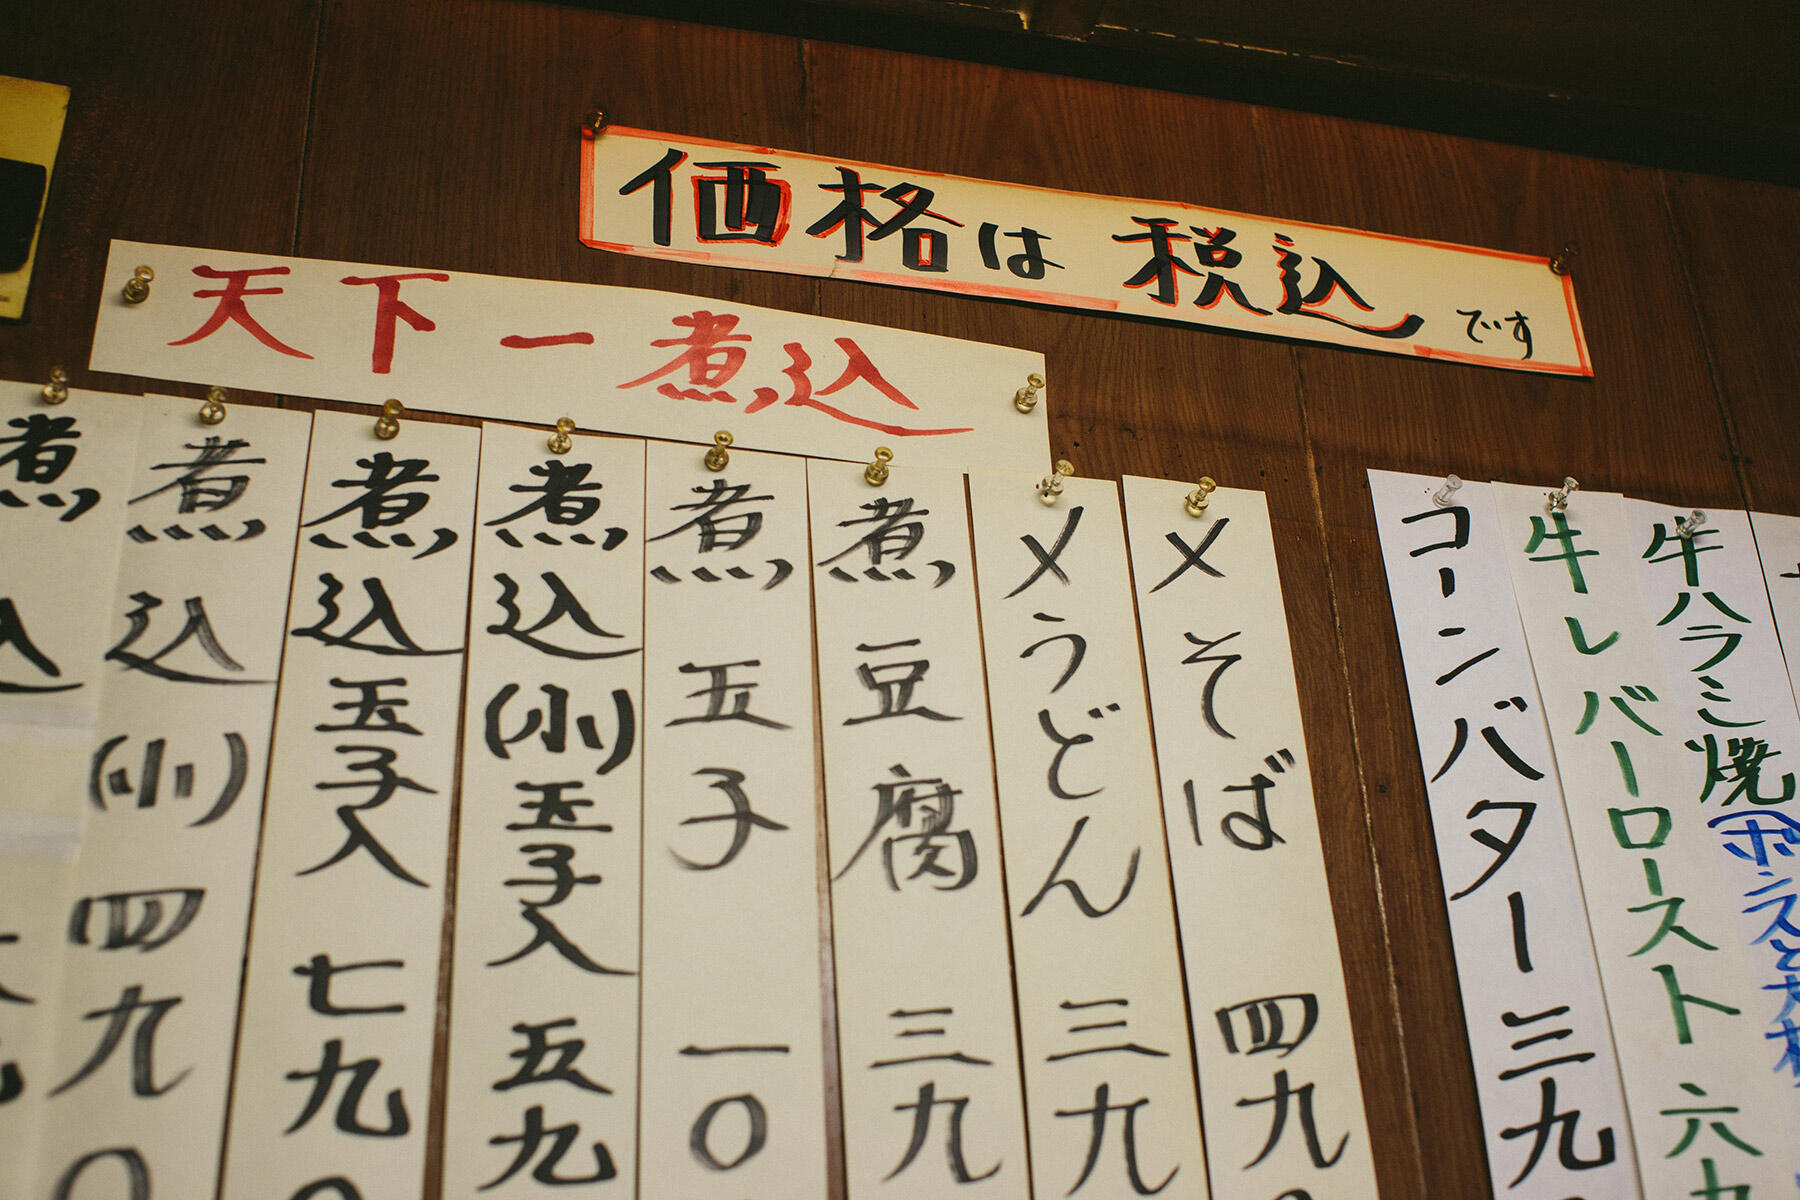 価格は税込です
天下一煮込
牛ハラミ焼(ポンズと大根
牛レバーロースト 六九
コーンバター 三九
〆そば 四九
〆うどん 三九
煮豆腐 三九
煮玉子 一〇
煮込(小)玉子入 五九
煮込玉子入 七九〇
煮込(小) 四九〇
煮込